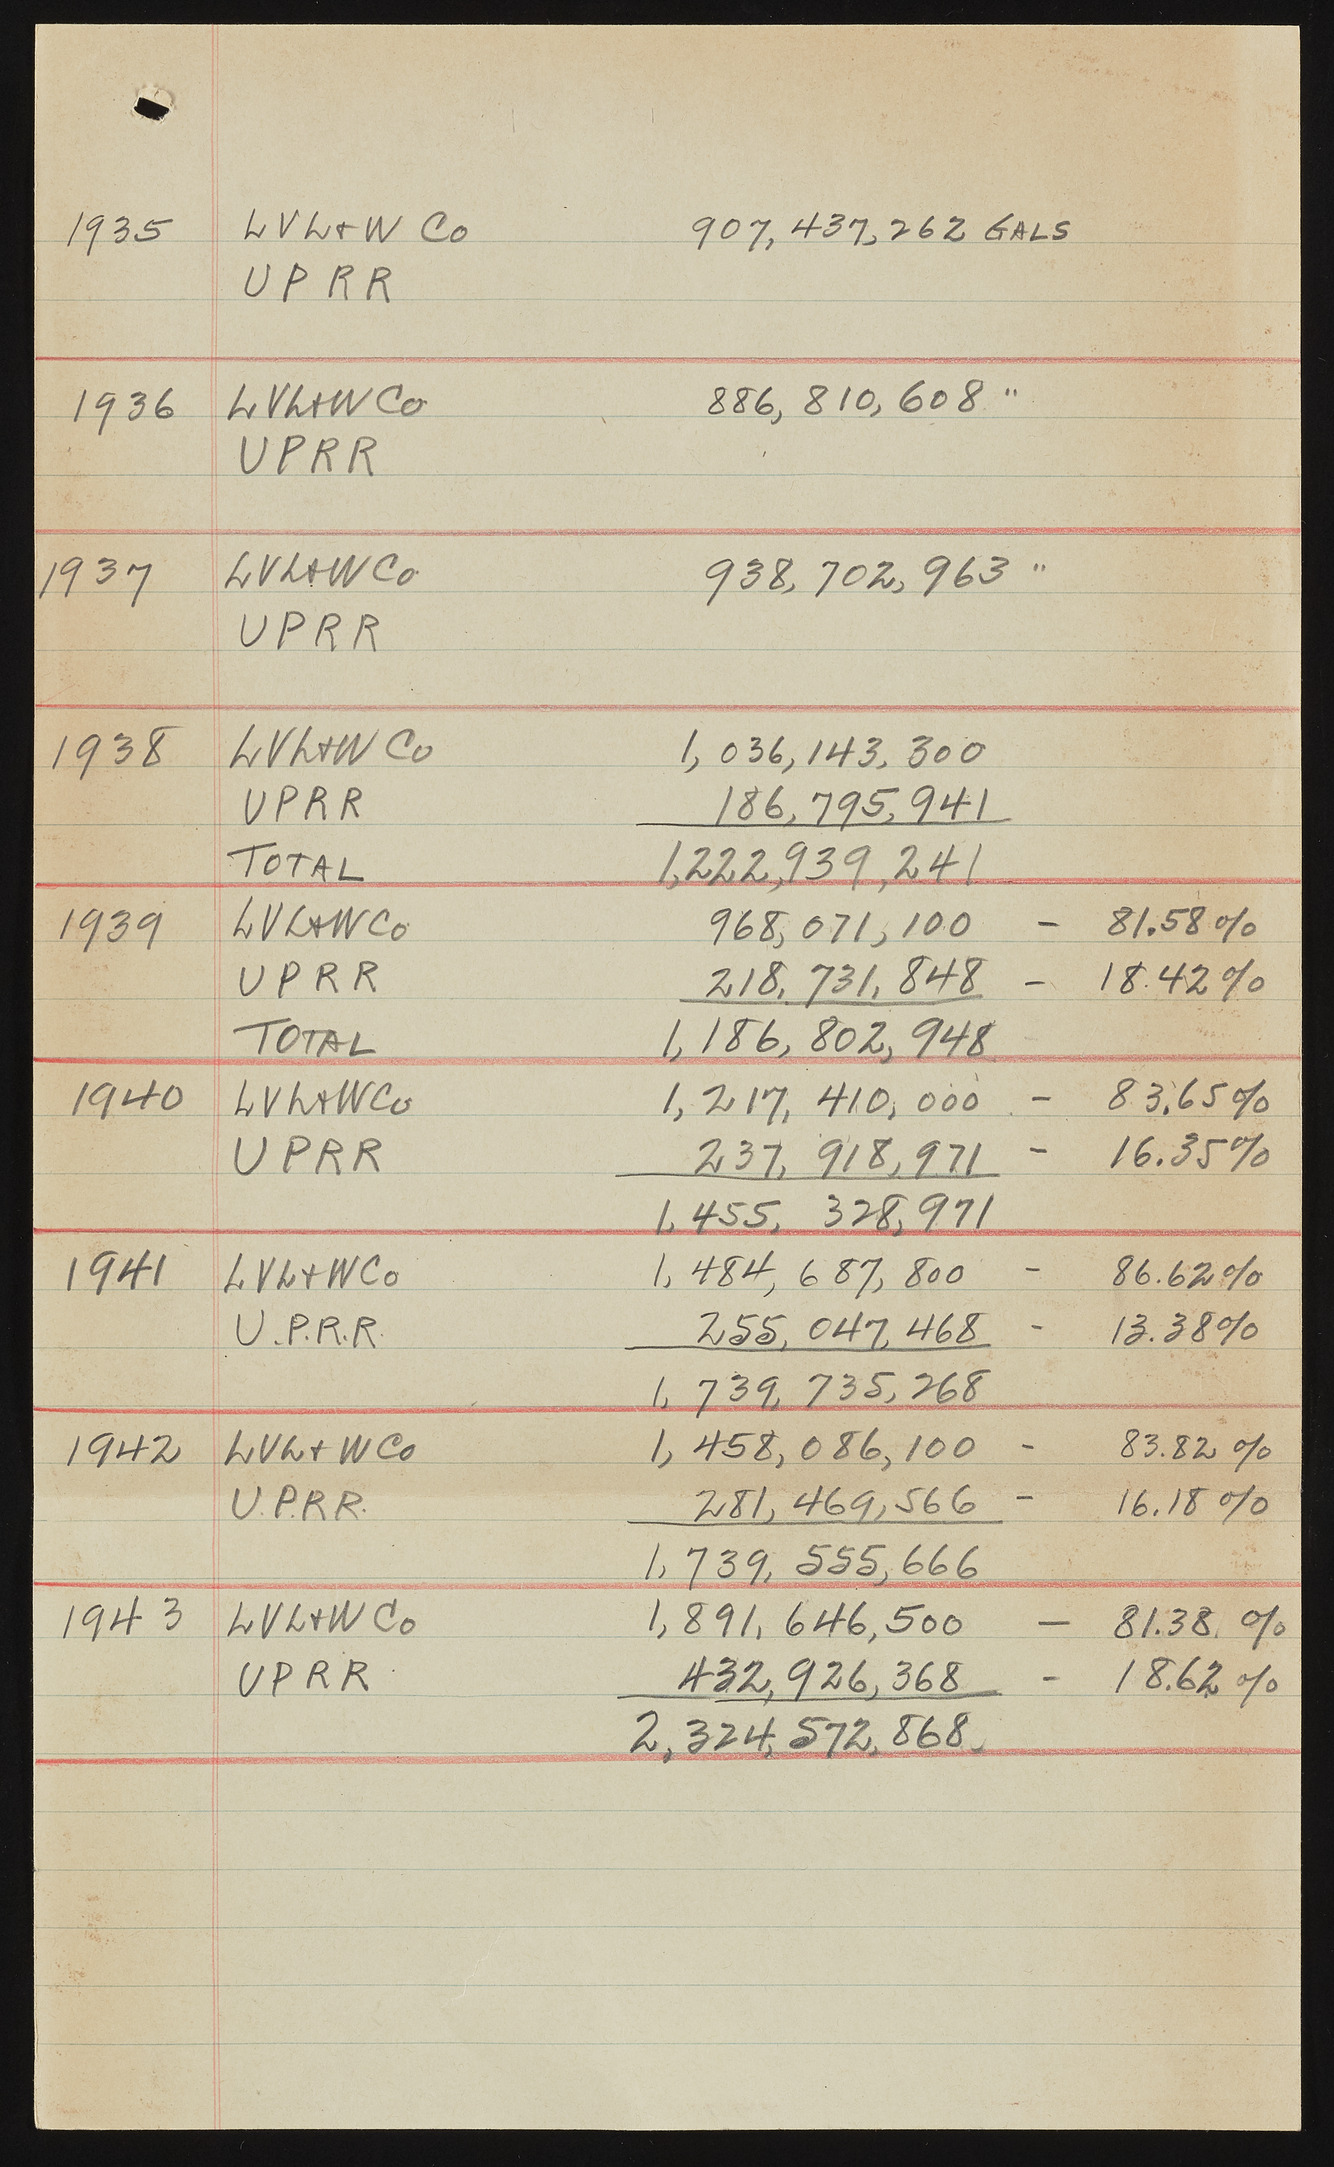 1935 LVL+W Co 907,437,262 GALS
UPRR
1936 LVL+W Co 886,810,608 "
UPRR
1937 LVL+W Co 938,702,963 "
UPRR
1938 LVL+W Co 1,036,143,300
UPRR 186,795,941
TOTAL 1,222,939,241
1939 LVL+W Co 968,071,100 - 81.58%
UPRR 218,731,848 - 18.42%
TOTAL 1,186,802,948
1940 LVL+W Co 1,217,410,000 - 83.65%
UPRR 237,918,971 - 16.35%
1,455,328,971
1941 LVL+W Co 1,484,687,800 - 86.62%
U.P.R.R. 255,047,468 - 13.38%
1,739,735,268
1942 LVL+W Co 1,458,086,100 - 83.82%
U.P.R.R. 281,469,566 - 16.18%
1,739,555,666
1943 LVL+W Co 1,891,646,500 - 81.38%
UPRR 432,926,368 - 18.62%
2,324,572,868